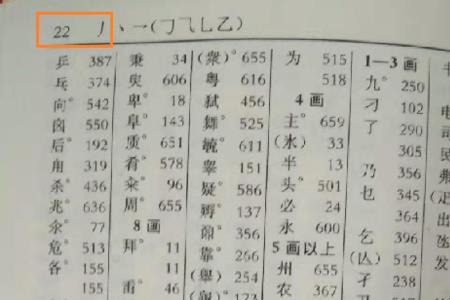 22 丿丶一(㇆乛乚乙)
乒 387
乓 374
向° 542
囟 550
后° 192
甪 319
杀° 436
兆° 636
汆° 77
危° 513
各° 155
155
秉 34
臾 606
卑° 18
阜° 143
质° 651
肴° 578
籴° 96
周° 655
8 画
拜° 11
11
臿° 46
(衆)° 655
粤 616
弑 456
舞° 525
毓° 611
睾 151
疑° 586
孵° 137
356
靠° 266
(舉)° 254
173
为 515
518
4 画
主° 659
(氷) 33
半 13
头° 501
必 24
永 600
5 画以上
州 655
农 367
1—3 画
九° 250
刁 102
了 290
305
乃 356
乜 345
364
乞 396
(亾) 512
孑 238